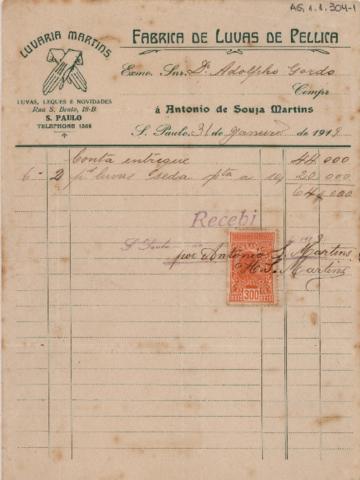 AG.1.1.304-1
LUVARIA MARTINS
LUVAS, LEQUES E NOVIDADES
Rua S. Bento, 18-B
S. PAULO
TELEPHONE 1566
FABRICA DE LUVAS DE PELLICA
Exmo. Snr. Dr. Adolpho Gordo
Compr
á Antonio de Souza Martins
S. Paulo, 31 de Janeiro de 191
Conta entregue 44 000
6 - 2 pr luvas seda pta a 20 000
64 000
Recebi
S. Paulo
por Antonio S. Martins
Martins
300